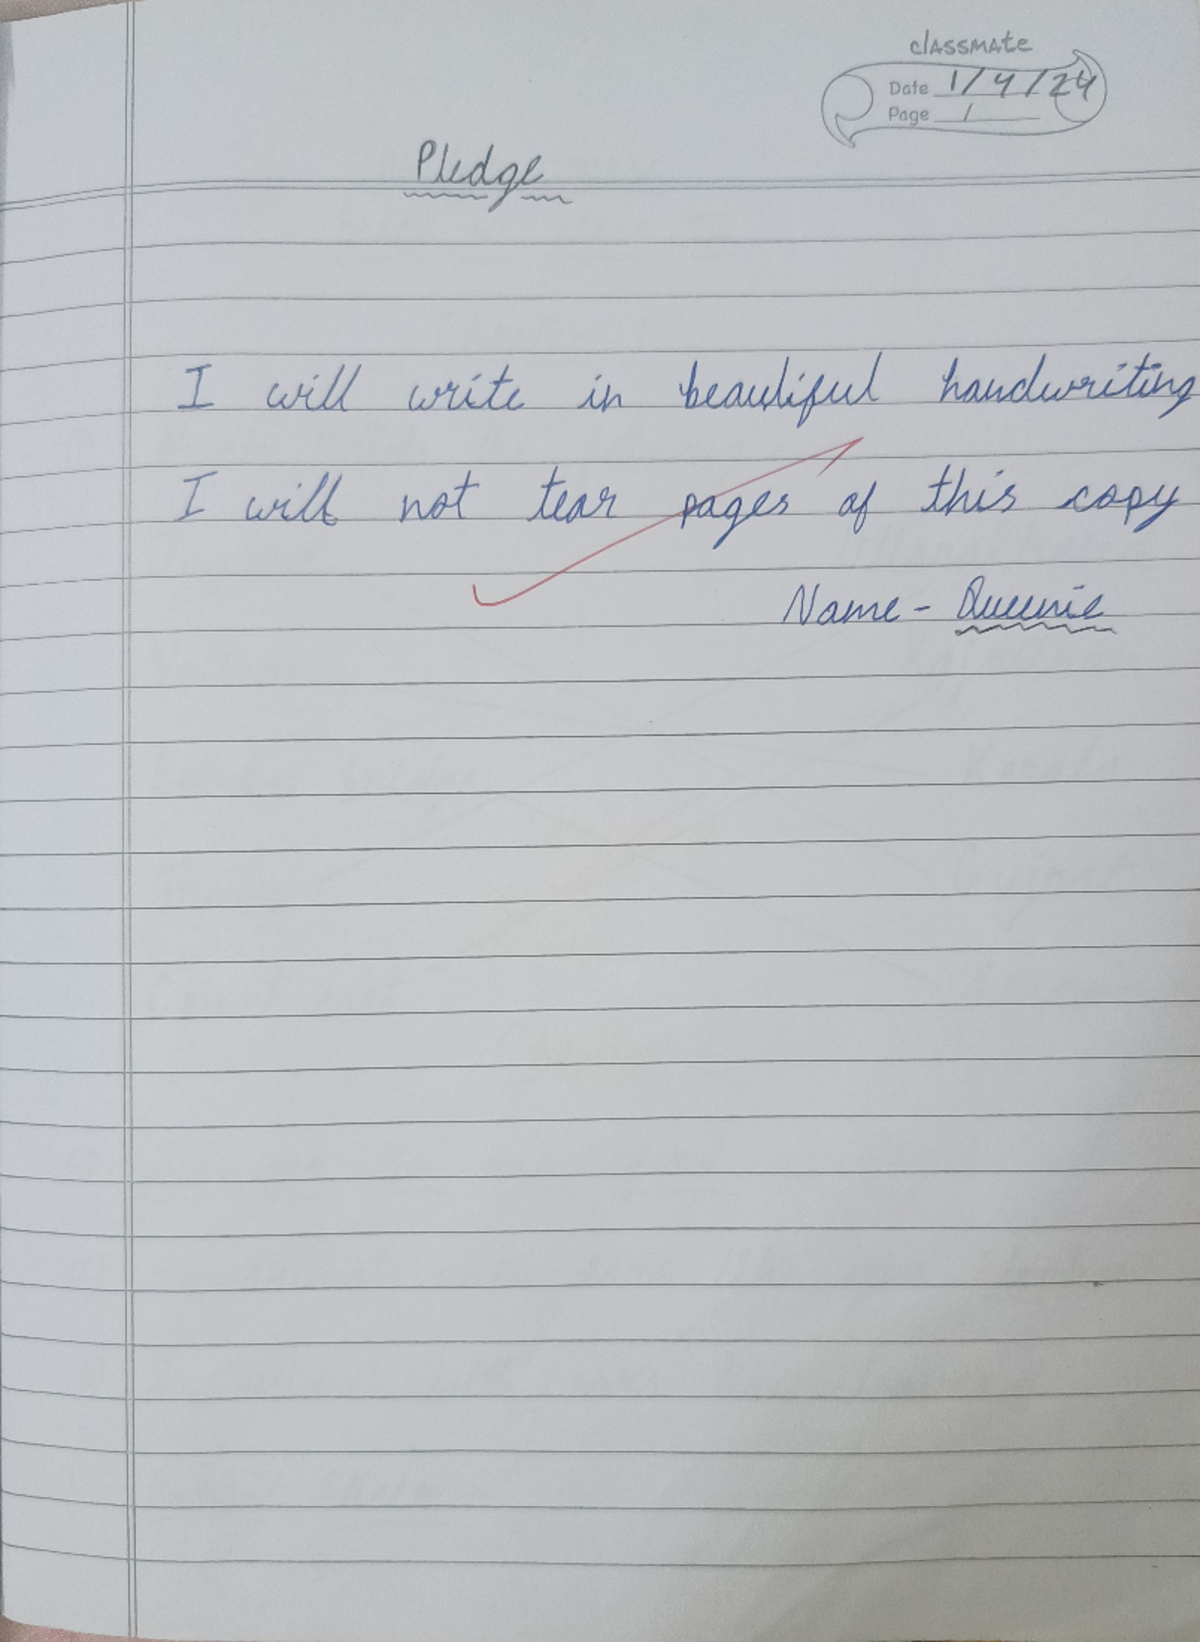 classmate
Date 1/4/24
Page 1
Pledge
I will write in beautiful handwriting
I will not tear pages of this copy
Name - Queenie